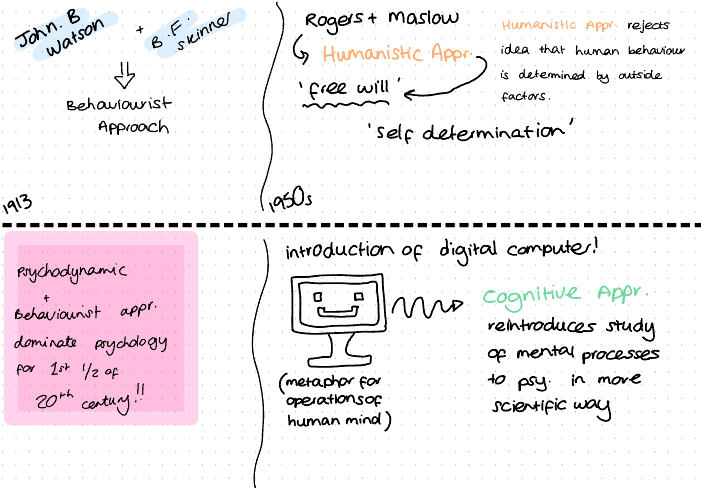 John. B Watson + B.F. Skinner
Behaviourist
Approach
1913
Rogers + Maslow
Humanistic Appr.
'free will'
'self determination'
Humanistic Appr. rejects
idea that human behaviour
is determined by outside
factors.
1950s
Psychodynamic
+
Behaviourist appr.
dominate psychology
for 1st 1/2 of
20th century!!
introduction of digital computer!
(metaphor for
operations of
human mind)
Cognitive Appr.
reintroduces study
of mental processes
to psy. in more
scientific way